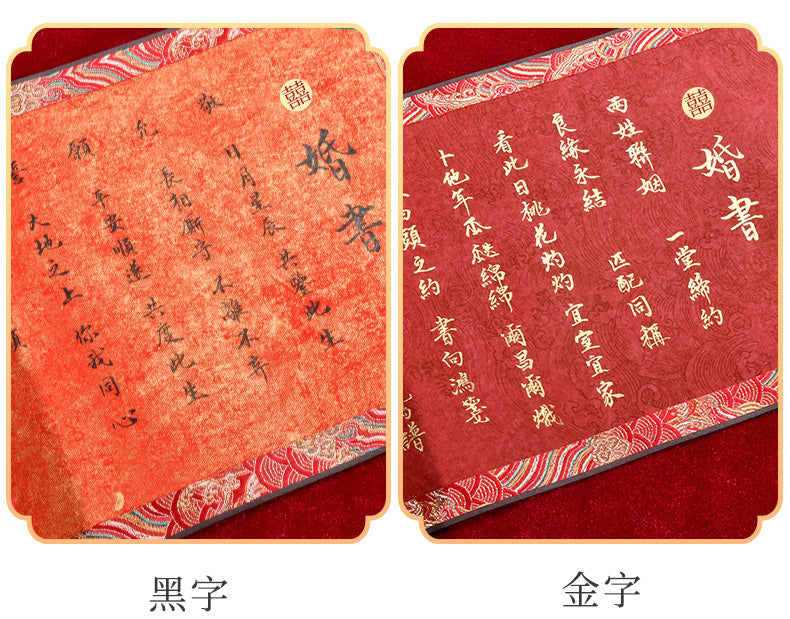 囍
婚書
敬允願
日月星辰 共鑒此生
長相廝守 不離不弃
平安順遂 共度此生
大地之上 你我同心
囍
婚書
兩姓聯姻 一堂締約
良緣永結 匹配同稱
看此日桃花灼灼 宜室宜家
卜他年瓜瓞綿綿 爾昌爾熾
白頭之約 書向鴻箋
譜
黑字
金字